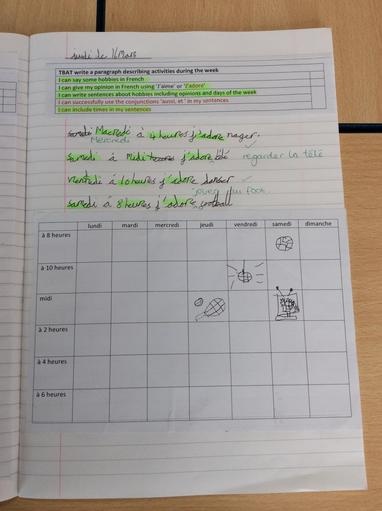 jeudi le 16 Mars
TBAT write a paragraph describing activities during the week
I can say some hobbies in French
I can give my opinion in French using 'J'aime' or 'J'adore'
I can write sentences about hobbies including opinions and days of the week
I can successfully use the conjunctions 'aussi, et' in my sentences
I can include times in my sentences
à 4 heures j'adore nager.
Mercredi
Samedi à Midi j'adore regarder la télé
vendredi à 10 heures j'adore danser
jouer au foot
Samedi à 8 heures j'adore football
lundi mardi mercredi jeudi vendredi samedi dimanche
à 8 heures
à 10 heures
midi
à 2 heures
à 4 heures
à 6 heures